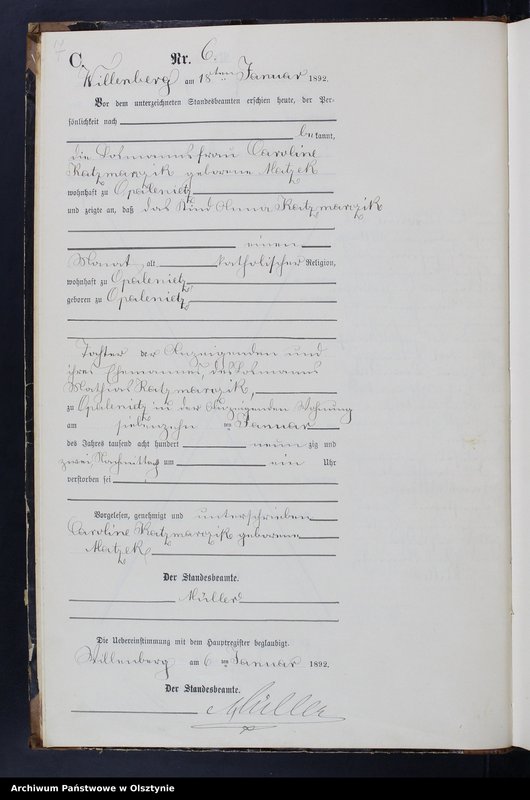 C.
Nr. 6.
Willenberg am 18ten Januar 1892.
Vor dem unterzeichneten Standesbeamten erschien heute, der Per-
sönlichkeit nach
bekannt,
die Losmannsfrau Caroline
Katzmarzik geborene Matzek
wohnhaft zu Opalenietz
und zeigte an, daß das Kind Anna Katzmarczik
einen
Monat alt, katholischer Religion,
wohnhaft zu Opalenietz
geboren zu Opalenietz
Tochter der Anzeigenden und
ihres Ehemannes, des Losmanns
Mathias Katzmarozik,
zu Opalenietz in der Anzeigenden Wohnung
am siebenzehn ten Januar
des Jahres tausend acht hundert neun zig und
zwei, Nachmittag um ein Uhr
verstorben sei
Vorgelesen, genehmigt und unterschrieben
Caroline Katzmarozik geborene
Matzek
Der Standesbeamte.
Müller
Die Uebereinstimmung mit dem Hauptregister beglaubigt.
Willenberg am ten Januar 1892.
Der Standesbeamte.
Müller
Archiwum Państwowe w Olsztynie